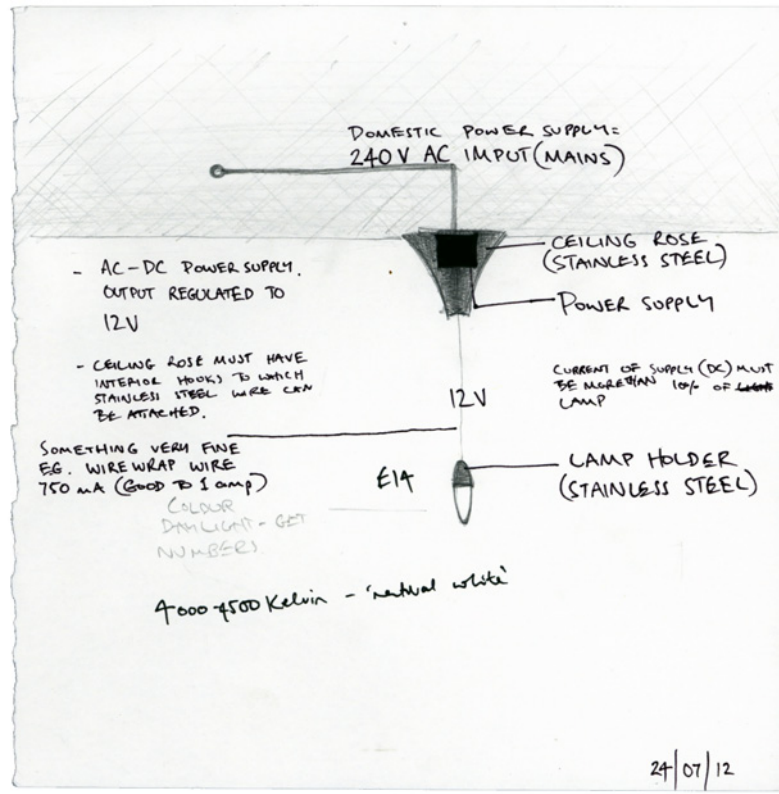 DOMESTIC POWER SUPPLY=
240V AC IMPUT (MAINS)
CEILING ROSE
(STAINLESS STEEL)
POWER SUPPLY
- AC-DC POWER SUPPLY.
OUTPUT REGULATED TO
12V
- CEILING ROSE MUST HAVE
INTERIOR HOOKS TO WHICH
STAINLESS STEEL WIRE CAN
BE ATTACHED.
12V
CURRENT OF SUPPLY (DC) MUST
BE MORE THAN 10% OF
LAMP
SOMETHING VERY FINE
EG. WIRE WRAP WIRE
750 mA (GOOD TO 1 amp)
E14
LAMP HOLDER
(STAINLESS STEEL)
COLOUR
DAYLIGHT - GET
NUMBERS.
4000-4500 Kelvin - 'natural white'
24/07/12